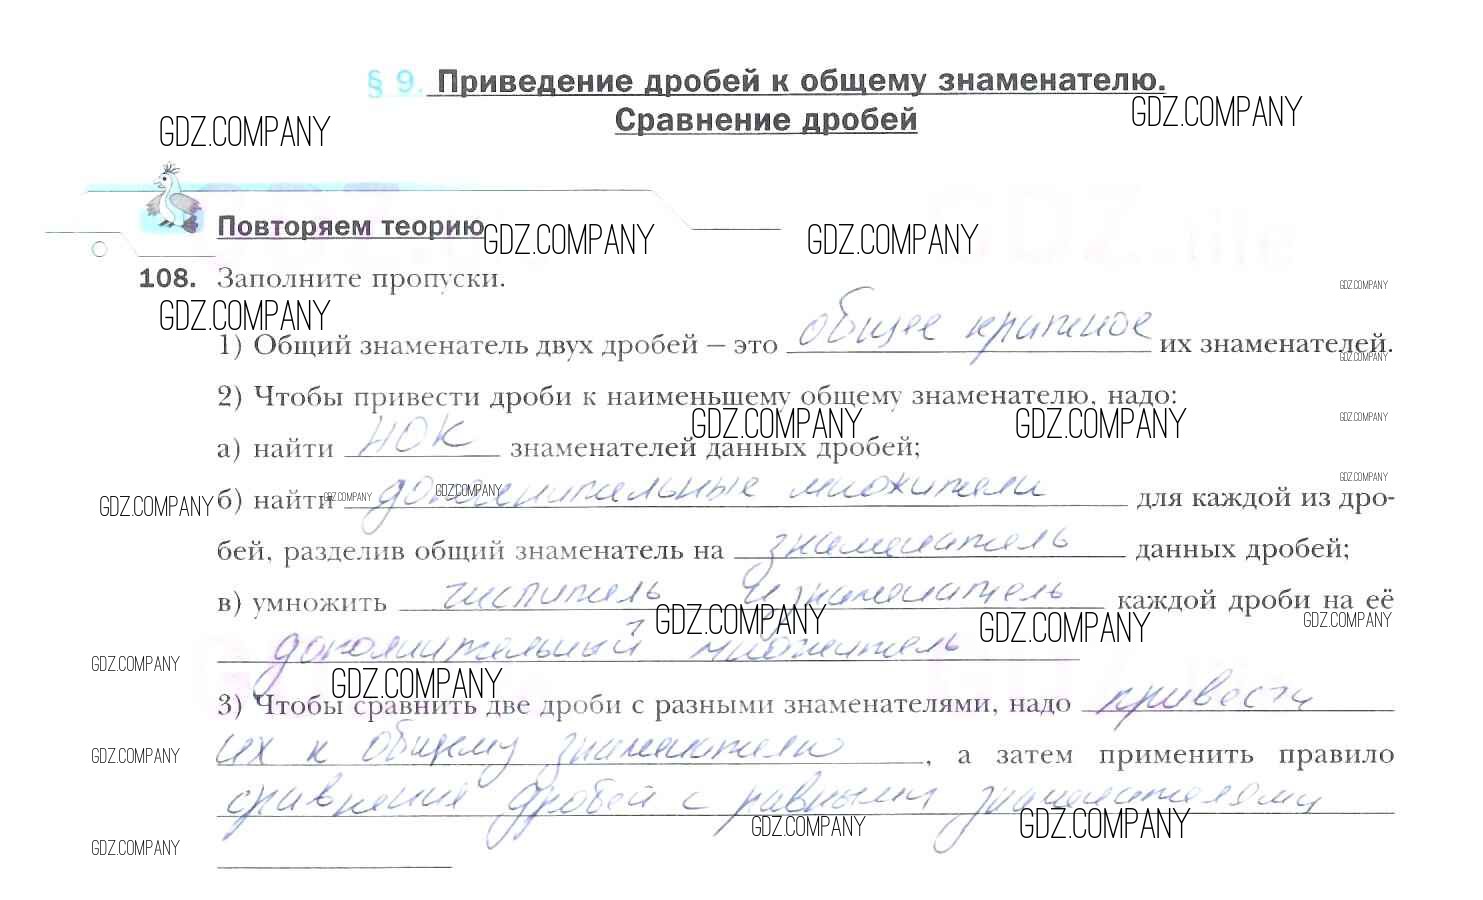 § 9. Приведение дробей к общему знаменателю.
GDZ.COMPANY
Сравнение дробей
GDZ.COMPANY
Повторяем теорию
GDZ.COMPANY GDZ.COMPANY
108. Заполните пропуски.
GDZ.COMPANY
GDZ.COMPANY
1) Общий знаменатель двух дробей – это общее кратное их знаменателей.
GDZ.COMPANY
2) Чтобы привести дроби к наименьшему общему знаменателю, надо:
GDZ.COMPANY GDZ.COMPANY GDZ.COMPANY
а) найти НОК знаменателей данных дробей;
GDZ.COMPANY
GDZ.COMPANY GDZ.COMPANY GDZ.COMPANY
б) найти дополнительные множители для каждой из дро-
бей, разделив общий знаменатель на знаменатель данных дробей;
в) умножить числитель и знаменатель каждой дроби на её
GDZ.COMPANY GDZ.COMPANY GDZ.COMPANY
дополнительный множитель
GDZ.COMPANY
GDZ.COMPANY
3) Чтобы сравнить две дроби с разными знаменателями, надо привести
их к общему знаменателю, а затем применить правило
GDZ.COMPANY
сравнения дробей с равными знаменателями
GDZ.COMPANY GDZ.COMPANY
GDZ.COMPANY